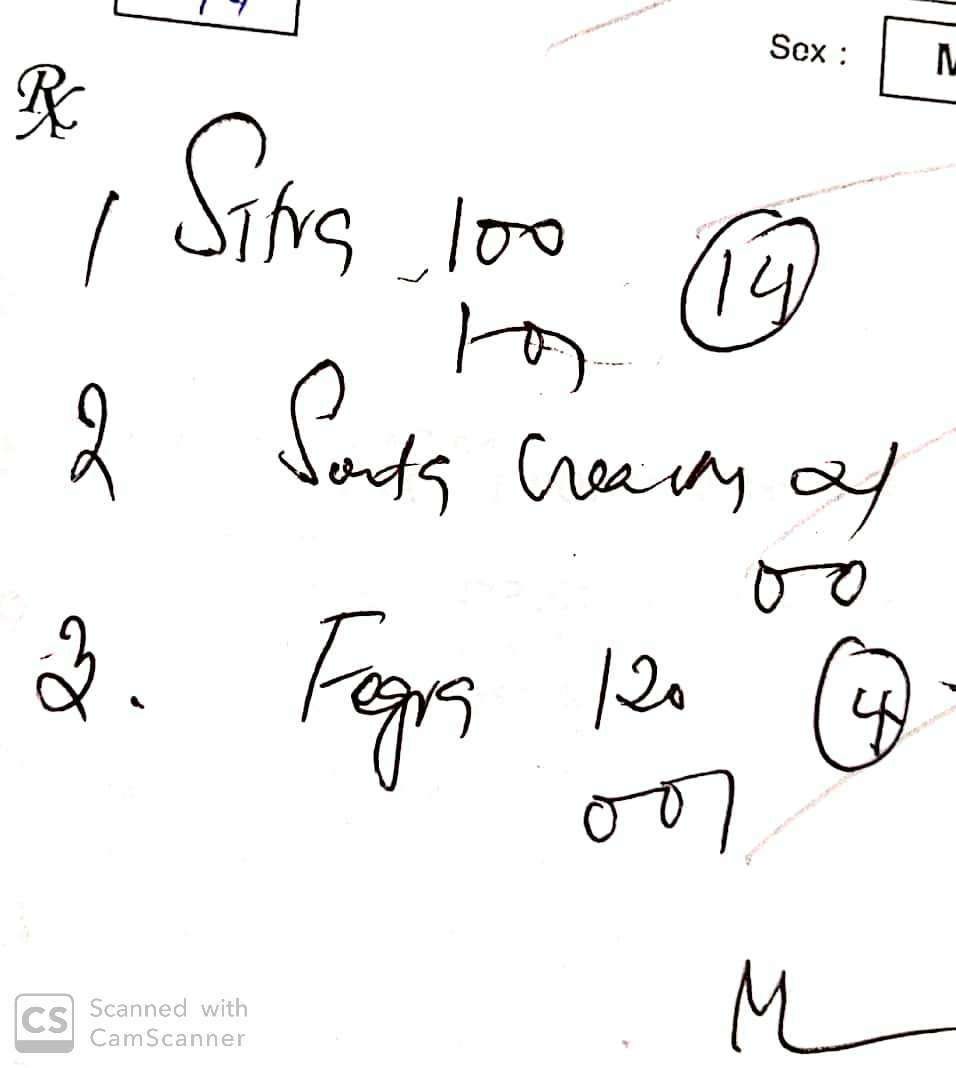 Sex : M
Rx
1 Sitra 100 14
101
2 Cream
00
3. Fegra 120 4
001
M
CS Scanned with
CamScanner